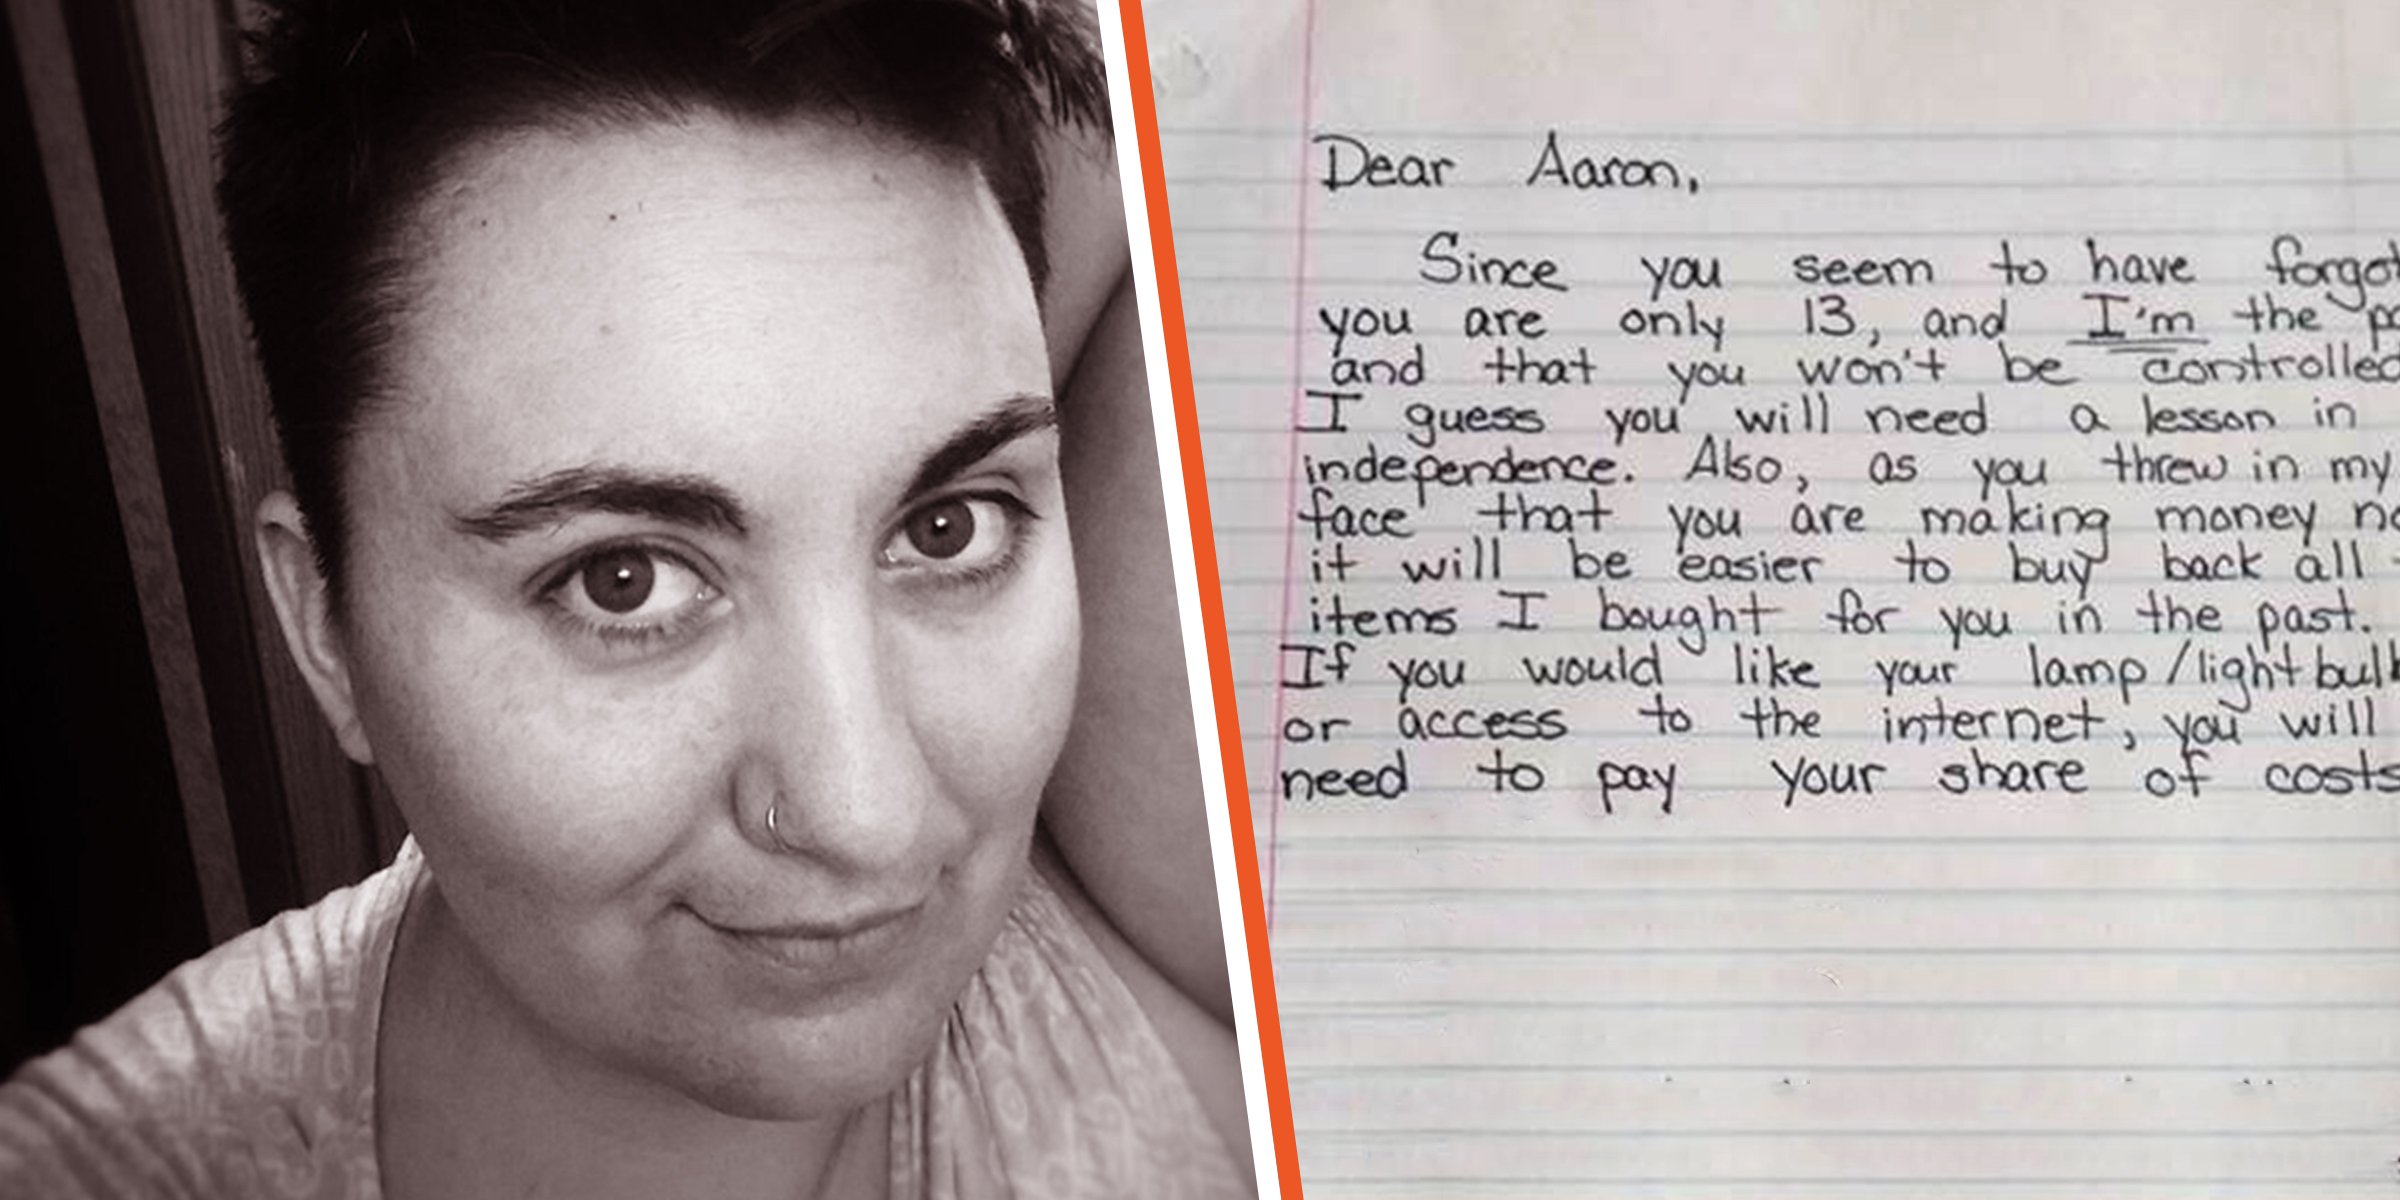 Dear Aaron,
Since you seem to have
you are only 13, and I'm the
and that you won't be controlled
I guess you will need a lesson in
independence. Also, as you threw in my
face that you are making money
it will be easier to buy back all
items I bought for you in the past.
If you would like your lamp/
or access to the internet, you will
need to pay your share of costs